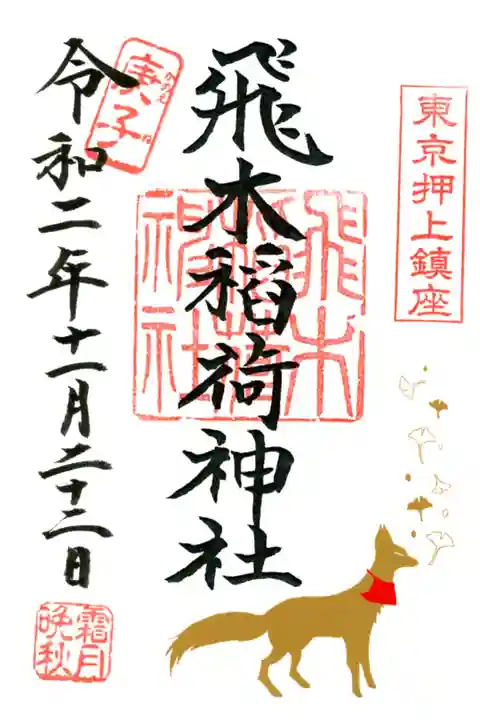 東京押上鎮座
飛木稲荷神社
飛木稲荷神社
庚子
かのえ
ね
令和二年十一月二十二日
霜月
晩秋